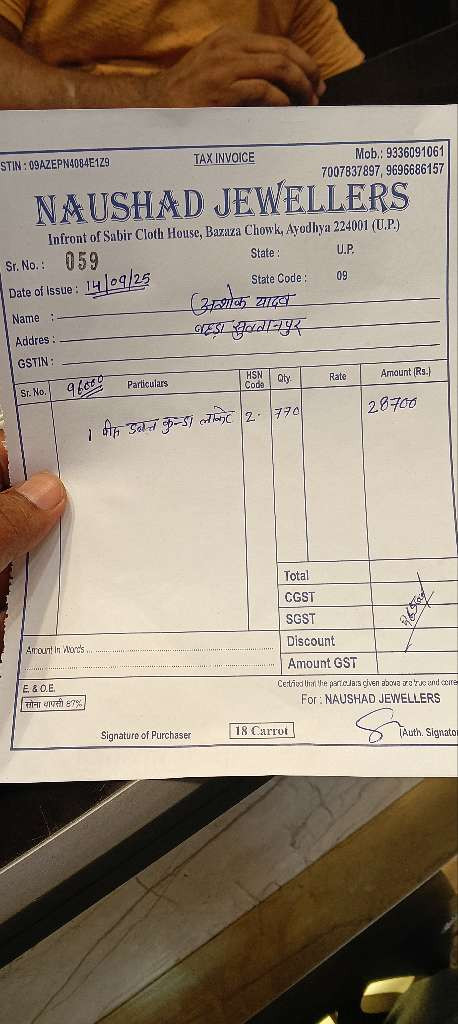 STIN : 09AZEPN4084E1Z9
TAX INVOICE
Mob.: 9336091061
7007837897, 9696686157
NAUSHAD JEWELLERS
Infront of Sabir Cloth House, Bazaza Chowk, Ayodhya 224001 (U.P.)
Sr. No. : 059
State : U.P.
Date of Issue : 14/09/25
State Code : 09
Name : अशोक यादव
Addres :
GSTIN :
Sr. No. 96000 Particulars HSN Code Qty. Rate Amount (Rs.)
1 पीस डबल कुन्डा लाकेट 2. 770 28700
Total
CGST
SGST
Discount
Amount GST
Amount In Words
E. & O.E.
Certified that the particulars given above are true and corre
For : NAUSHAD JEWELLERS
सोना वापसी 87%
Signature of Purchaser
18 Carrot
(Auth. Signato